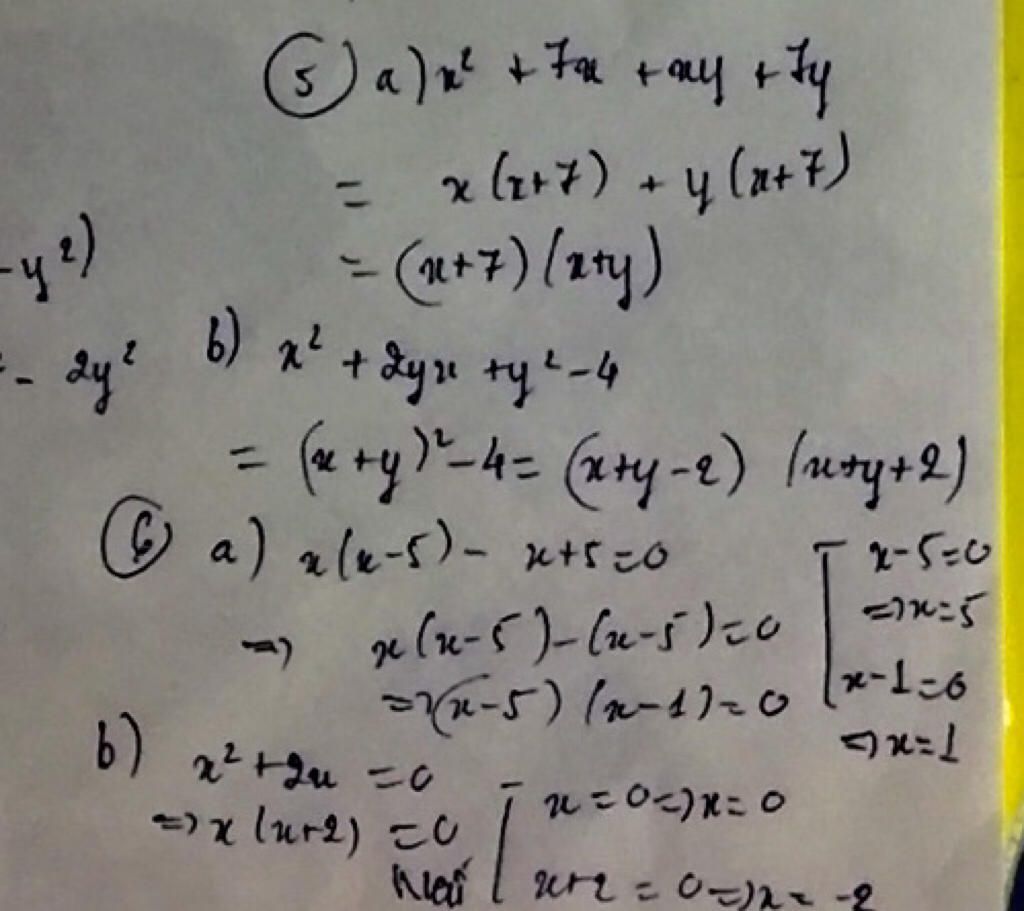 5 a) x² + 7x + xy + 7y
= x(x+7) + y(x+7)
= (x+7)(x+y)
-y²)
- 2y²
b) x² + 2yx + y² - 4
= (x+y)² - 4 = (x+y-2) (x+y+2)
6 a) x(x-5) - x+5=0
=> x(x-5)-(x-5)=0
=>(x-5)(x-1)=0
[ x-5=0
=>x=5
x-1=0
=>x=1
b) x²+2x =0
=>x(x+2)=0
[ x=0=>x=0
x+2=0=>x=-2